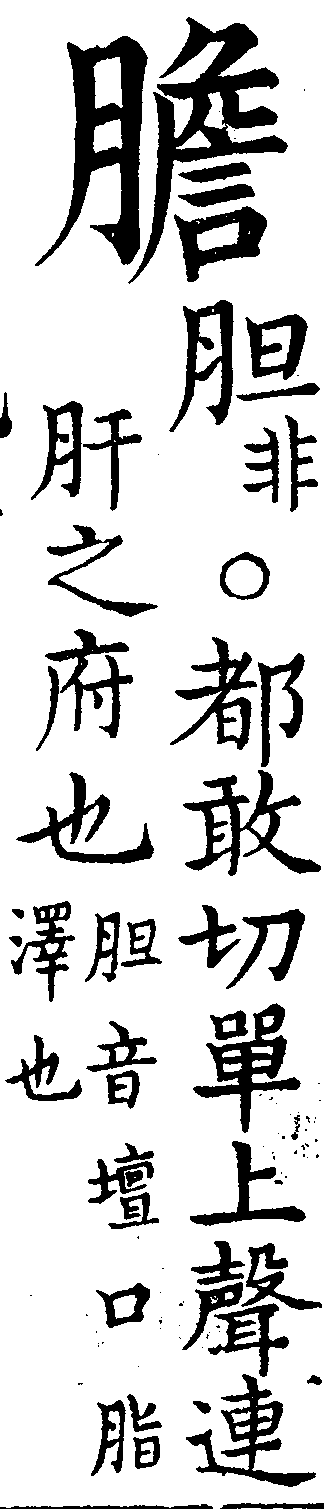 膽
胆非○都敢切單上聲連
肝之府也
胆音壇口脂
澤也